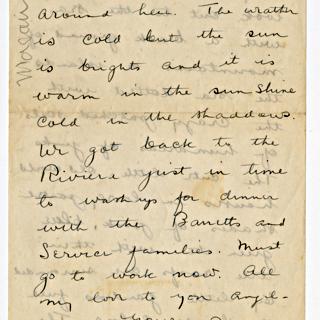 around here. The weather
is cold but the sun
is brights and it is
warm in the sun shine
cold in the shaddows.
We got back to the
Riviera just in time
to wash up for dinner
with the Barretts and
Server families. Must
go to work now. All
my love to you angel-